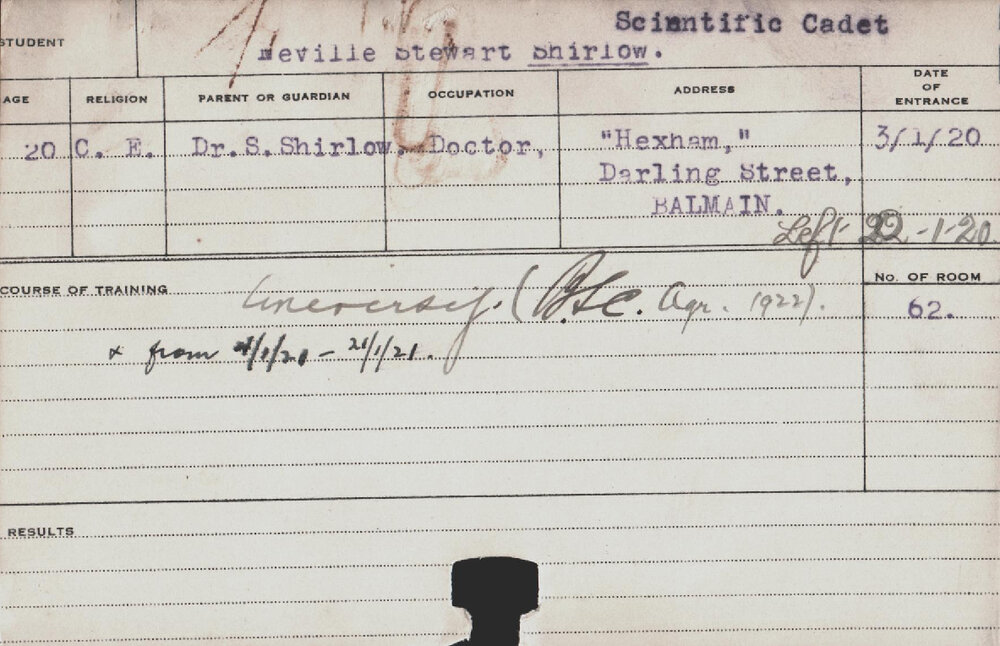 Scientific Cadet
STUDENT Neville Stewart Shirlow.
AGE RELIGION PARENT OR GUARDIAN OCCUPATION ADDRESS DATE OF ENTRANCE
20 C. E. Dr.S.Shirlow. Doctor, "Hexham," 3/1/20
Darling Street,
BALMAIN.
Left 22-1-20
COURSE OF TRAINING University. (B.Sc. Agr. 1922). No. OF ROOM
62.
x from /1/21 - 21/1/21.
RESULTS